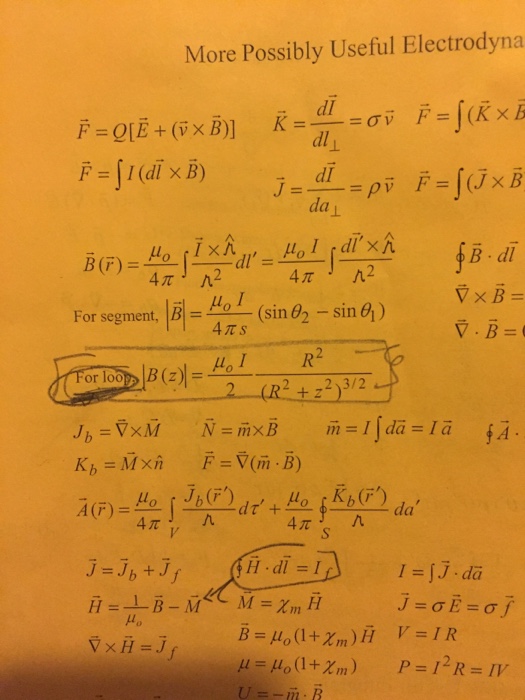 More Possibly Useful Electrodyna
F⃗ = Q[E⃗ + (v⃗ × B⃗)] K⃗ = dI⃗/dl⊥ = σv⃗ F⃗ = ∫(K⃗ × B⃗
F⃗ = ∫I(dl⃗ × B⃗) J⃗ = dI⃗/da⊥ = ρv⃗ F⃗ = ∫(J⃗ × B⃗
B⃗(r⃗) = μ₀/4π ∫ I⃗ × r̂/r² dl′ = μ₀I/4π ∫ dl⃗′ × r̂/r² ∮B⃗ · dl⃗
∇⃗ × B⃗ =
For segment, |B⃗| = μ₀I/4πs (sin θ₂ − sin θ₁) ∇⃗ · B⃗ =
For loop, |B(z)| = μ₀I/2 R²/(R² + z²)^3/2
J⃗_b = ∇⃗×M⃗ N⃗ = m⃗×B⃗ m⃗ = I∫da⃗ = Ia⃗ ∮A⃗ ·
K⃗_b = M⃗×n̂ F⃗ = ∇⃗(m⃗ · B⃗)
A⃗(r⃗) = μ₀/4π ∫_V J⃗_b(r⃗′)/r dτ′ + μ₀/4π ∮_S K⃗_b(r⃗′)/r da′
J⃗ = J⃗_b + J⃗_f ∮H⃗ · dl⃗ = I_f I = ∫J⃗ · da⃗
H⃗ = 1/μ₀ B⃗ − M⃗ M⃗ = χ_m H⃗ J⃗ = σE⃗ = σf⃗
∇⃗ × H⃗ = J⃗_f B⃗ = μ₀(1 + χ_m)H⃗ V = IR
μ = μ₀(1 + χ_m) P = I²R = IV
U = −m⃗ · B⃗